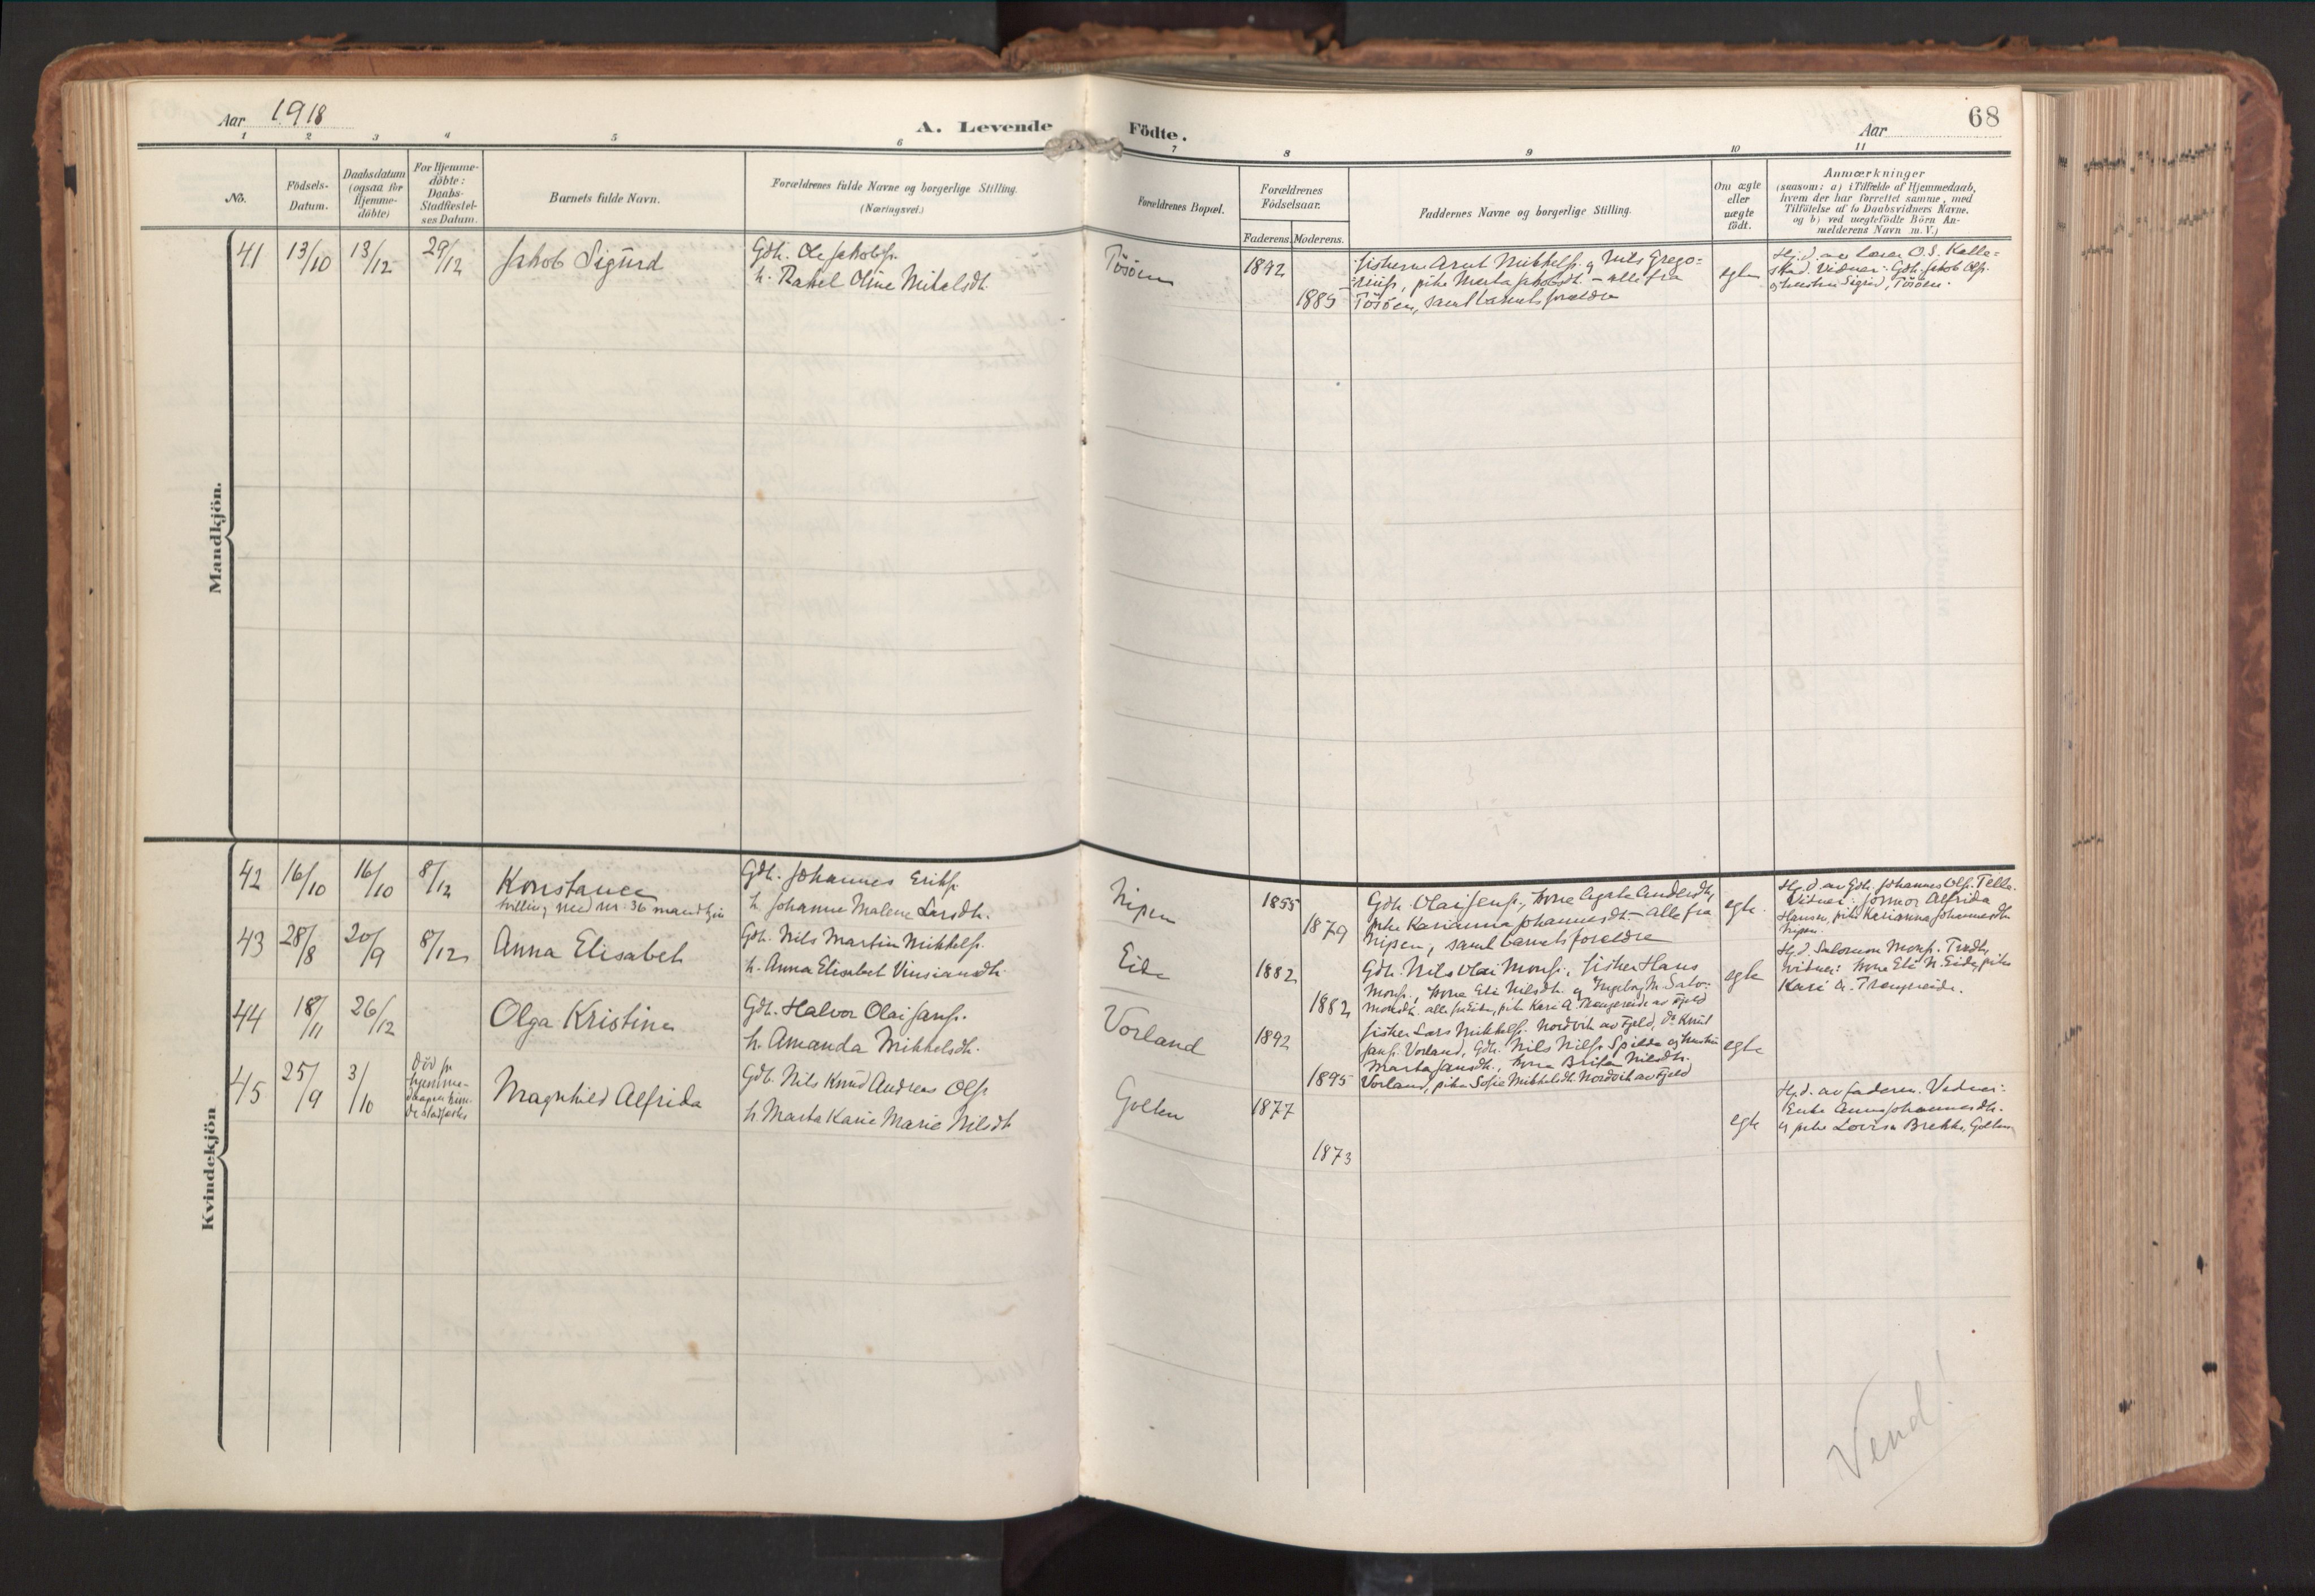 Aar 1918
A. Levende Födte.
Aar
68
1 2 3 4 5 6 7 8 9 10 11
No.
Födsels-
Datum.
Daabsdatum
(ogsaa for
Hjemme-
döbte)
For Hjemme-
döbte:
Daabs-
Stadfæstel-
ses Datum.
Barnets fulde Navn.
Forældrenes fulde Navne og borgerlige Stilling.
(Næringsvei.)
Forældrenes Bopæl.
Forældrenes
Födselsaar.
Faderens. Moderens.
Faddernes Navne og borgerlige Stilling.
Om ægte
eller
uægte
födt.
Anmærkninger
(saasom: a) i Tilfælde af Hjemmedaab,
hvem der har forrettet samme, med
Tilföielse af to Daabsvidners Navne.
og b) ved uægtefödte Börn An-
melderens Navn m. V.)
Mandkjön.
41
13/10
13/12
29/12
Jakob Sigurd
Gdb. Ole Jakobs.
h. Rakel Oline Mikelsdh.
Tösöen
1842
1885
fiskerne Arnt Mikkels. og Nils Grego=
rius, pike Marta Jakobsdh. – alle fra
Tösöen, samt barnets forældre
egte
Hj. d. av lærer O. S. Kalle=
stad. Vidner: Gdb. Jakob Ols.
og hustru Sigrid, Tösöen.
Kvindekjön
42
16/10
16/10
8/12
Konstance
tvilling med nr. 36 mandkjön
Gdb. Johannes Eriks.
h. Johanne Malene Larsdh.
Nipen
1855
1879
Gdb. Olai Jens., kone Agate Andersdh,
pike Karianna Johannesdh – alle fra
Nipen, samt barnets foreldre
egte
Hj. d. av Gdb. Johannes Ols. Telle.
Vidner: jormor Alfrida
Hansen, pike Karianna Johannesdh
Nipen.
43
28/8
20/9
8/12
Anna Elisabet
Gdb. Nils Martin Mikkels.
h. Anna Elisabet Vinsiansdh.
Eide
1882
1882
Gdb. Nils Olai Mons., fisker Hans
Mons., kone Eli Nilsdh. og Ingeborg M. Salo-
monsdh. alle fra Eide, pike Kari A. Trengereide av Fjeld
egte
Hj. d. Salomon Mons.
vidner: kone Eli N. Eide, pike
Kari A. Trengereide.
44
18/11
26/12
Olga Kristine
Gdb. Halvor Olai Jans.
h. Amanda Mikkelsdh.
Vorland
1892
1895
fisker Lars Mikkels. Nordvik av Fjeld, do Knut
Jans. Vorland, Gdb. Nils Nils. Spilde og hustru
Marta Jansdh., kone Brita Nilsdh.
Vorland, pike Sofie Mikkelsdh. Nordvik av Fjeld
egte
45
25/9
3/10
Död för
hjemme-
daapen kun-
de stadfestes
Magnhild Alfrida
Gdb. Nils Knud Andreas Ols.
h. Marta Karie Marie Nilsdh
Golten
1877
1873
egte
Hj. d. av faderen. Vidner:
Enke Anna Johannesdh.
og pike Lovisa Brekke, Golten
Vend!